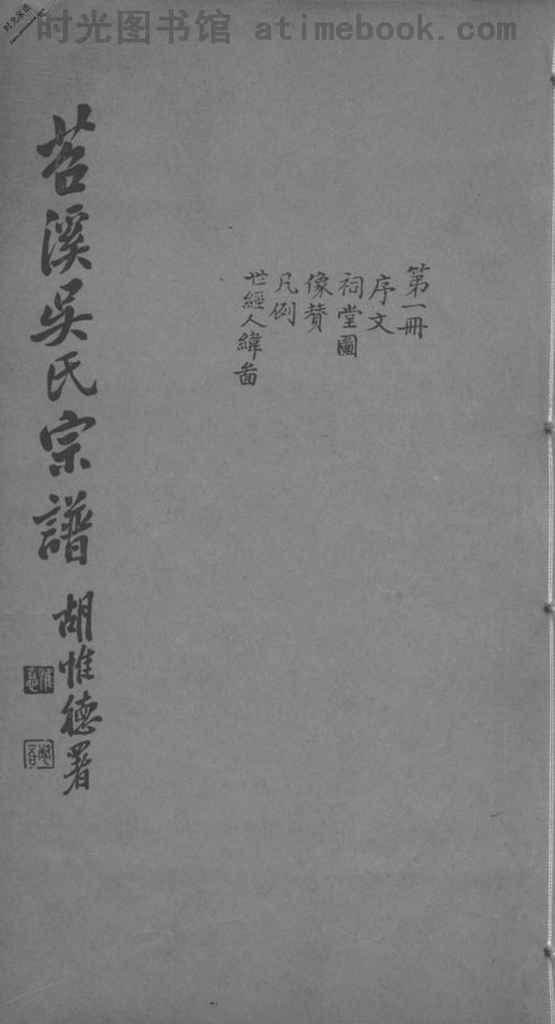 时光图书馆 atimebook.com
第一冊
序文
祠堂圖
像贊
凡例
世經人緯啚
苕溪吳氏宗譜
胡惟德署